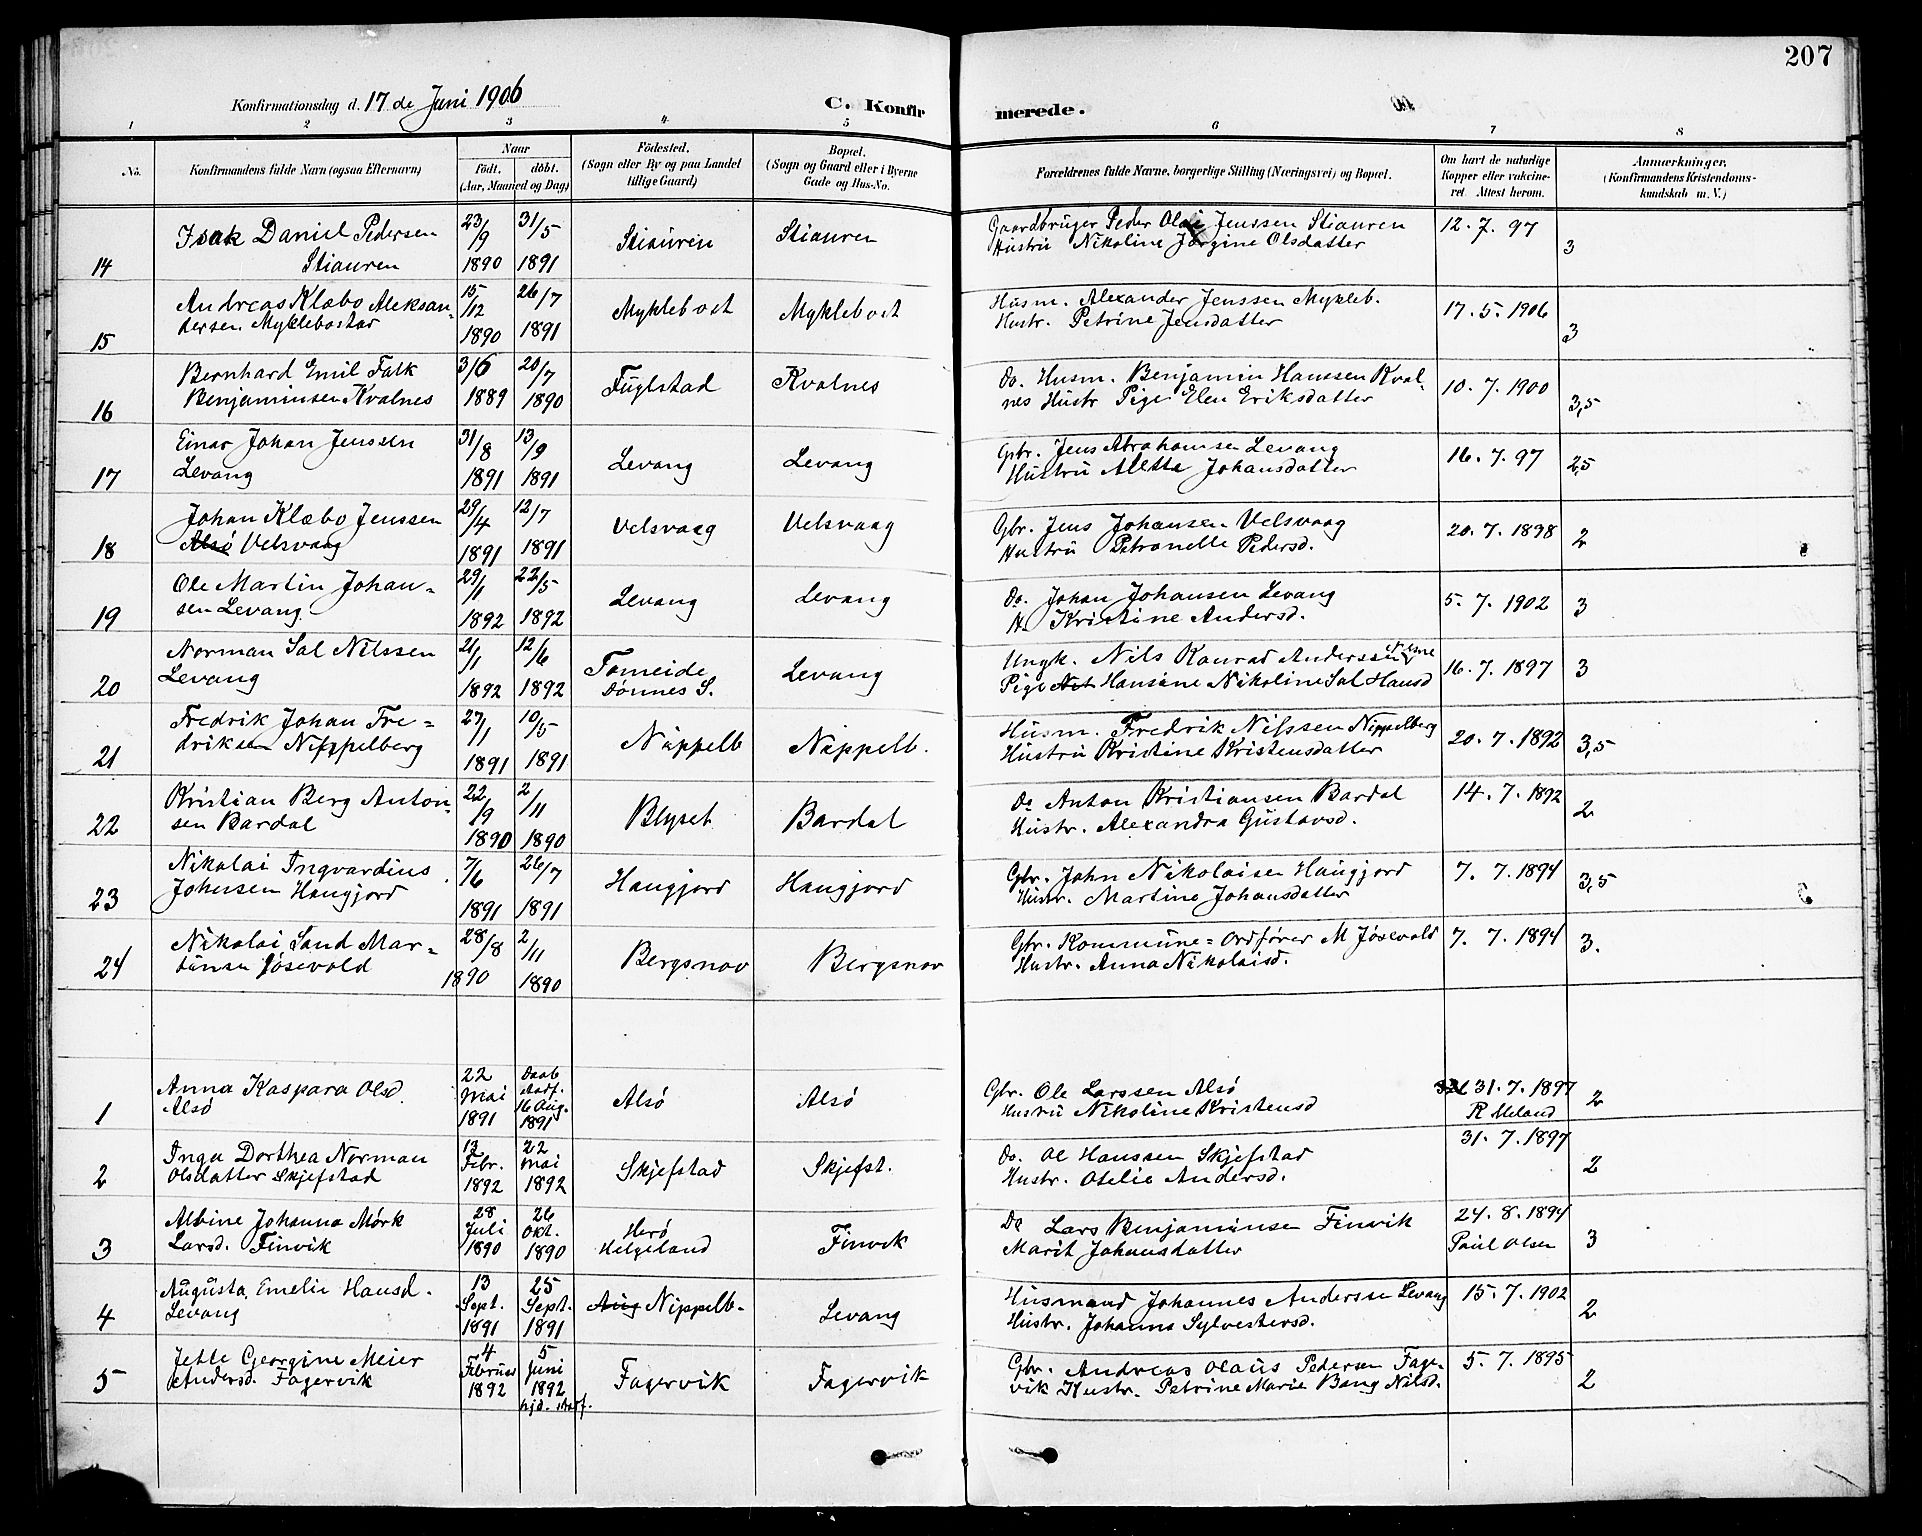 207
Konfirmationsdag d. 17 de Juni 1906 C. Konfir merede.
1 2 3 4 5 6 7 8
No. Konfirmandens fulde Navn (ogsaa Efternavn) Naar født. døbt. (Aar, Maaned og Dag) Fødested. (Sogn eller By og paa Landet tillige Gaard) Bopæl. (Sogn og Gaard eller i Byerne Gade og Hus-No. Forældrenes fulde Navne, borgerlige Stilling (Næringsvei) og Bopæl. Om havt de naturlige Kopper eller vakcineret. Attest herom. Anmærkninger, (Konfirmandens Kristendomskundskab m. V.)
Isak Daniel Pedersen 23/9 31/5 Stiauren Stiauren Gaardbrüger Peder Olai Jenssen Stiauren 12. 7. 97
14 Stiauren 1890 1891 Hustrü Nikoline Jørgine Olsdatter 3
Andreas Klæbo Aleksan- 15/12 26/7 Myklebost Myklebost Husm. Alexander Jenssen Mykleb. 17. 5. 1906
15 dersen Myklebostad 1890 1891 Hustr. Petrine Jensdatter 3
Bernhard Emil Falk 3/6 20/7 Füglstad Kvalnes Do. Husm. Benjamin Hanssen Kval- 10. 7. 1900
16 Benjaminsen Kvalnes 1889 1890 nes Hustr Pige Elen Eriksdatter 3,5
Einar Johan Jenssen 31/8 13/9 Levang Levang Gbr. Jens Abrahamsen Levang 16. 7. 97
17 Levang 1891 1891 Hustrü Aletta Johansdatter 2,5
Johan Klæbo Jenssen 29/4 12/7 Velsvaag Velsvaag Gbr. Jens Johansen Velsvaag 20. 7. 1898
18 Alsø Velsvaag 1891 1891 Hustrü Petronelle Pedersd. 2
Ole Martin Johan- 29/1 22/5 Levang Levang Do. Johan Johansen Levang 5. 7. 1902
19 sen Levang 1892 1892 H. Kristine Andersd. 3
Norman Sal Nilssen 21/1 12/6 Tomeide Levang Ungk. Nils Konrad Anderssen 16. 7. 1897 3
20 Levang 1892 1892 Dønnes S. Pige Hansine Nikoline Sal Hansd
Fredrik Johan Fre- 27/1 10/5 Nüppelb Nippelb. Husm. Fredrik Nilssen Nippelberg 20. 7. 1892 3,5
21 driksen Nippelberg 1891 1891 Hustrü Kristine Kristensdatter
Kristian Berg Anton- 22/9 2/11 Blyset Bardal Do Anton Kristiansen Bardal 14. 7. 1892
22 sen Bardal 1890 1890 Hustr. Alexandra Güstavsd. 2
Nikolai Ingvardius 7/6 26/7 Haugjord Haugjord Gbr. John Nikolaisen Haugjord 7. 7. 1894 3,5
23 Johnsen Haugjord 1891 1891 Hustr. Martine Johansdatter
Nikolai Sand Mar- 28/8 2/11 Bergsnov Bergsnov Gbr. Kommüne= Ordfører M Jøsevold 7. 7. 1894 3.
24 tinsen Jøsevold 1890 1890 Hustr. Anna Nikolaisd.
Anna Kaspara Olsd. 22 Mai 1891 Daab stadf. 16 Aug. 1891 Alsø Alsø Gbr. Ole Larssen Alsø 31. 7. 1897 2
1 Alsø Hustrü Nikoline Kristensd R Meland
Inga Dorthea Norman 13 Febr. 1892 22 Mai 1892 Skjefstad Skjefst. Do. Ol Hanssen Skjefstad 31. 7. 1897
2 Olsdatter Skjefstad Hustr. Otelie Andersd. 2
Albine Johanna Mørk 28 Juli 1890 26 Okt. 1890 Herø Helgeland Finvik Do Lars Benjaminsen Finvik 24. 8. 1894
3 Larsd. Finvik Marit Johansdatter Paül Olsen 3
Augusta Emelie Hansd. 13 Sept. 1891 25 Sept. 1891 Aug Nippelb. Levang Husmand Johannes Anderssen Levang 15. 7. 1902
4 Levang Hustr. Johanna Sylvestersd. 2
Jette Georgine Meier 4 Februar 1892 5 Juni 1892 hjd. stadf. Fagervik Fagervik Gbr. Andreas Olaüs Pedersen Fager- 5. 7. 1895
5 Andersd. Fagervik vik Hustr. Petrine Marie Bang Nilsd. 2